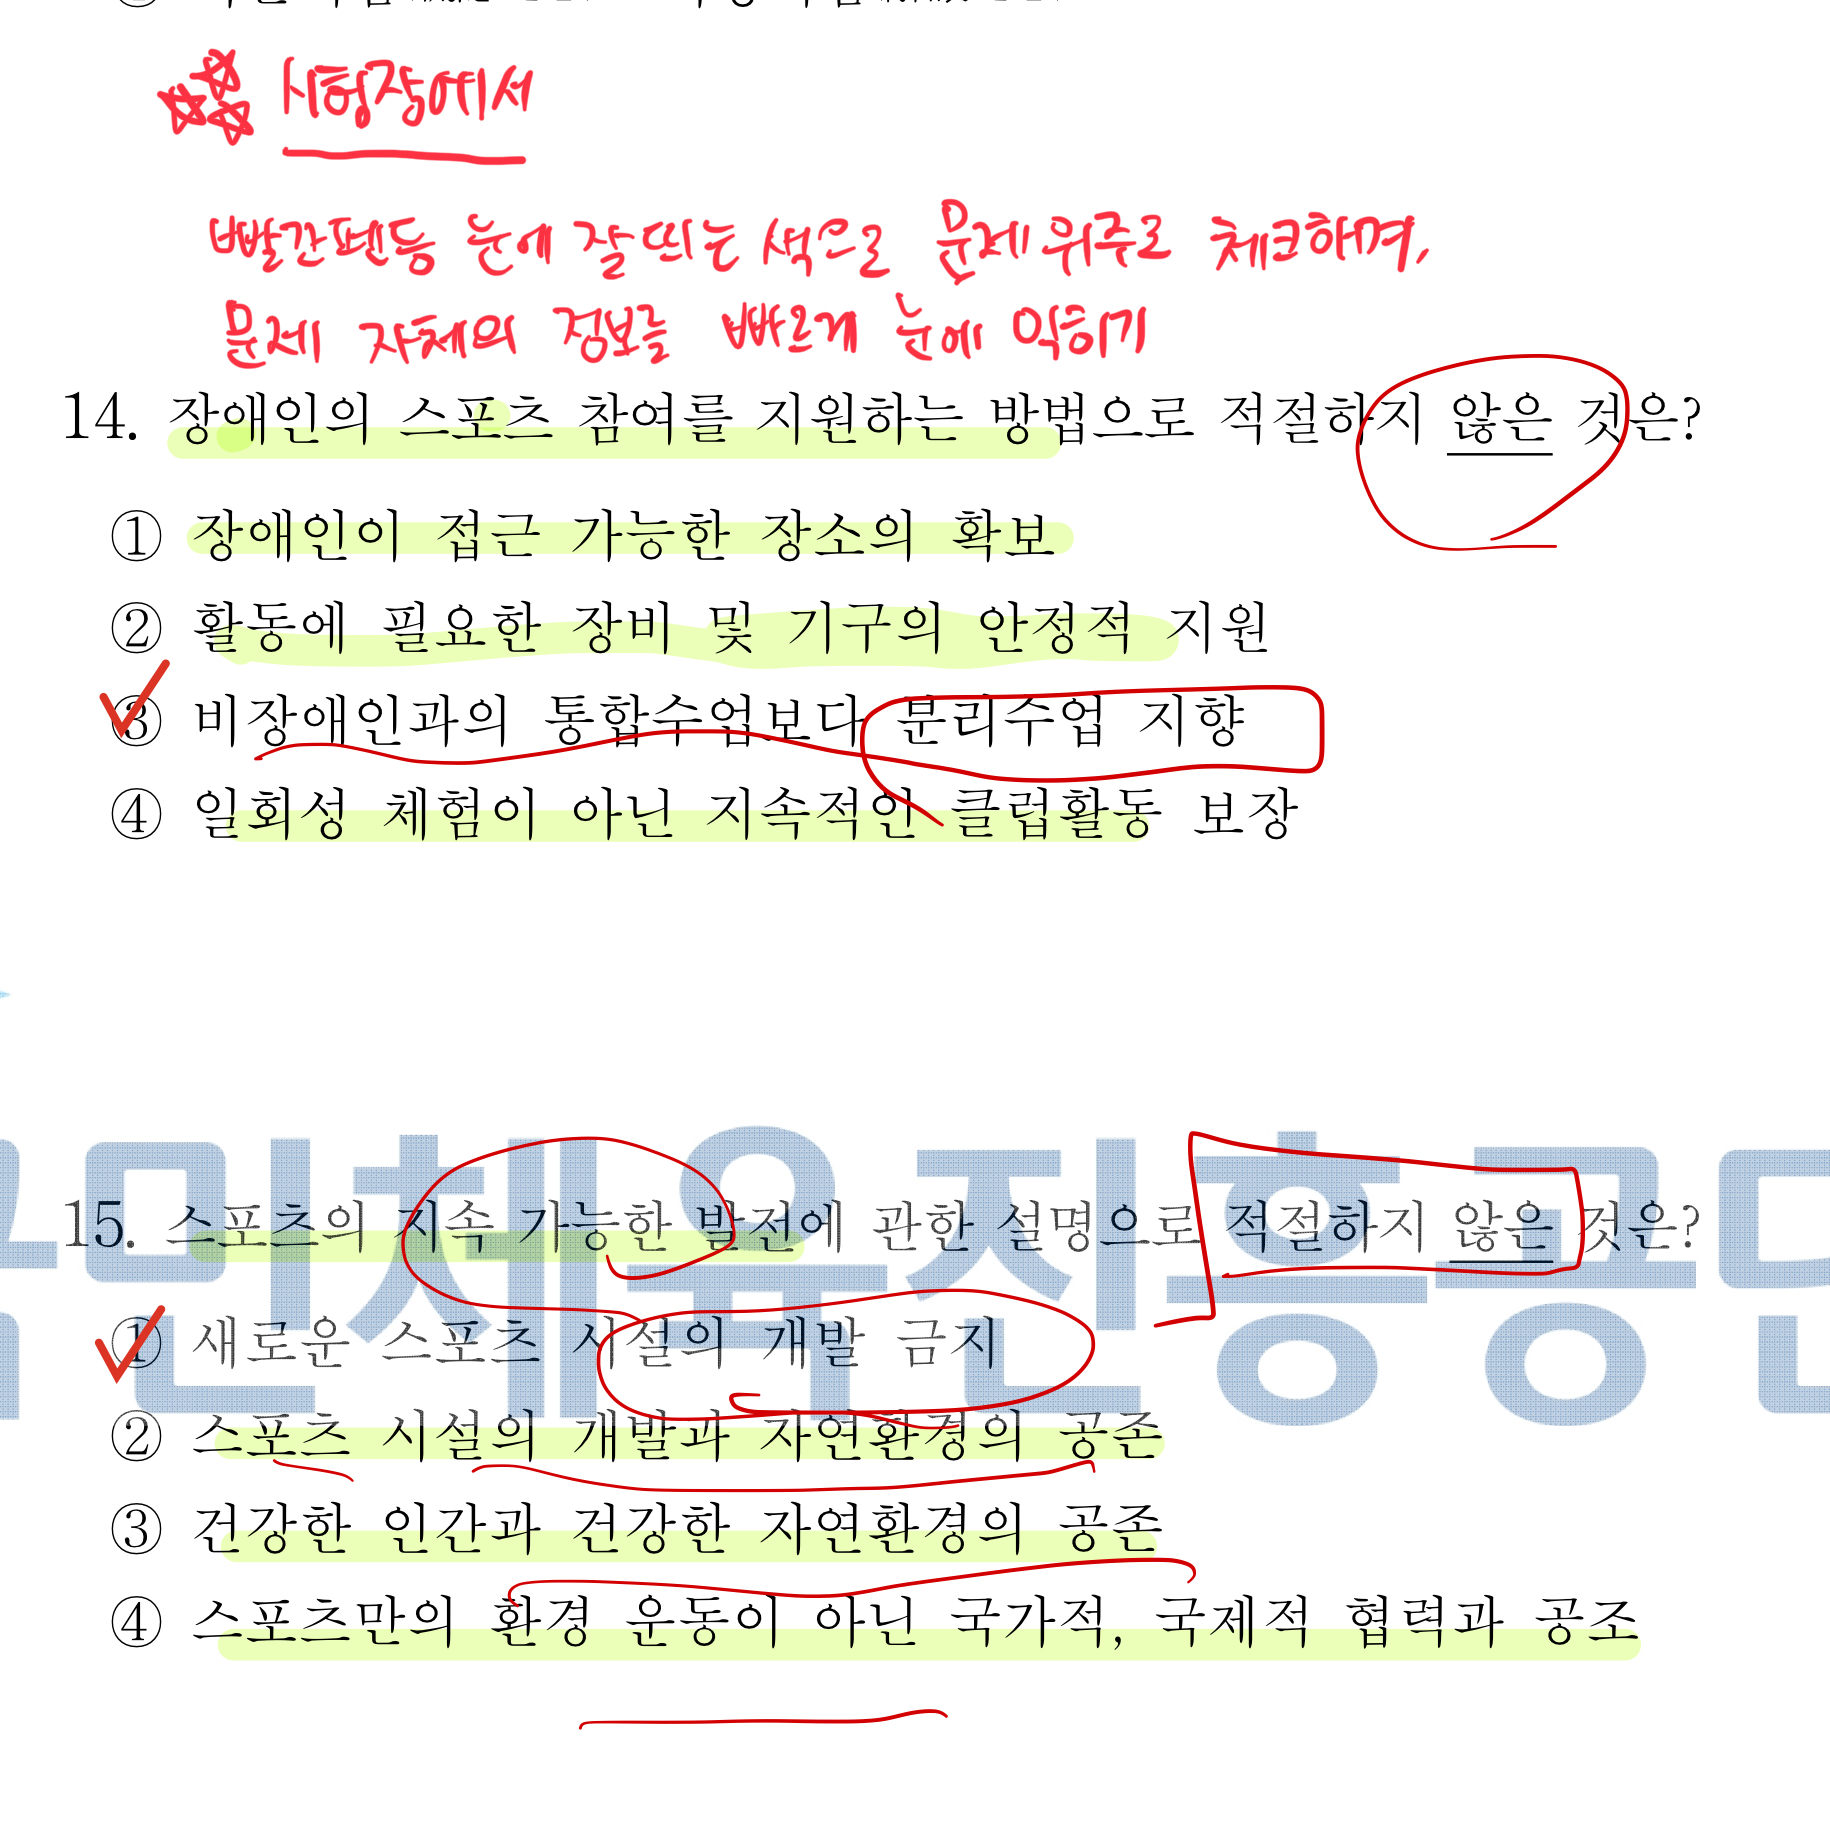 시험장에서
빨간펜등 눈에 잘 띄는 색으로 문제 위주로 체크하며,
문제 자체의 정보를 빠르게 눈에 익히기
14. 장애인의 스포츠 참여를 지원하는 방법으로 적절하지 않은 것은?
① 장애인이 접근 가능한 장소의 확보
② 활동에 필요한 장비 및 기구의 안정적 지원
③ 비장애인과의 통합수업보다 분리수업 지향
④ 일회성 체험이 아닌 지속적인 클럽활동 보장
국민체육진흥공단
15. 스포츠의 지속 가능한 발전에 관한 설명으로 적절하지 않은 것은?
① 새로운 스포츠 시설의 개발 금지
② 스포츠 시설의 개발과 자연환경의 공존
③ 건강한 인간과 건강한 자연환경의 공존
④ 스포츠만의 환경 운동이 아닌 국가적, 국제적 협력과 공조